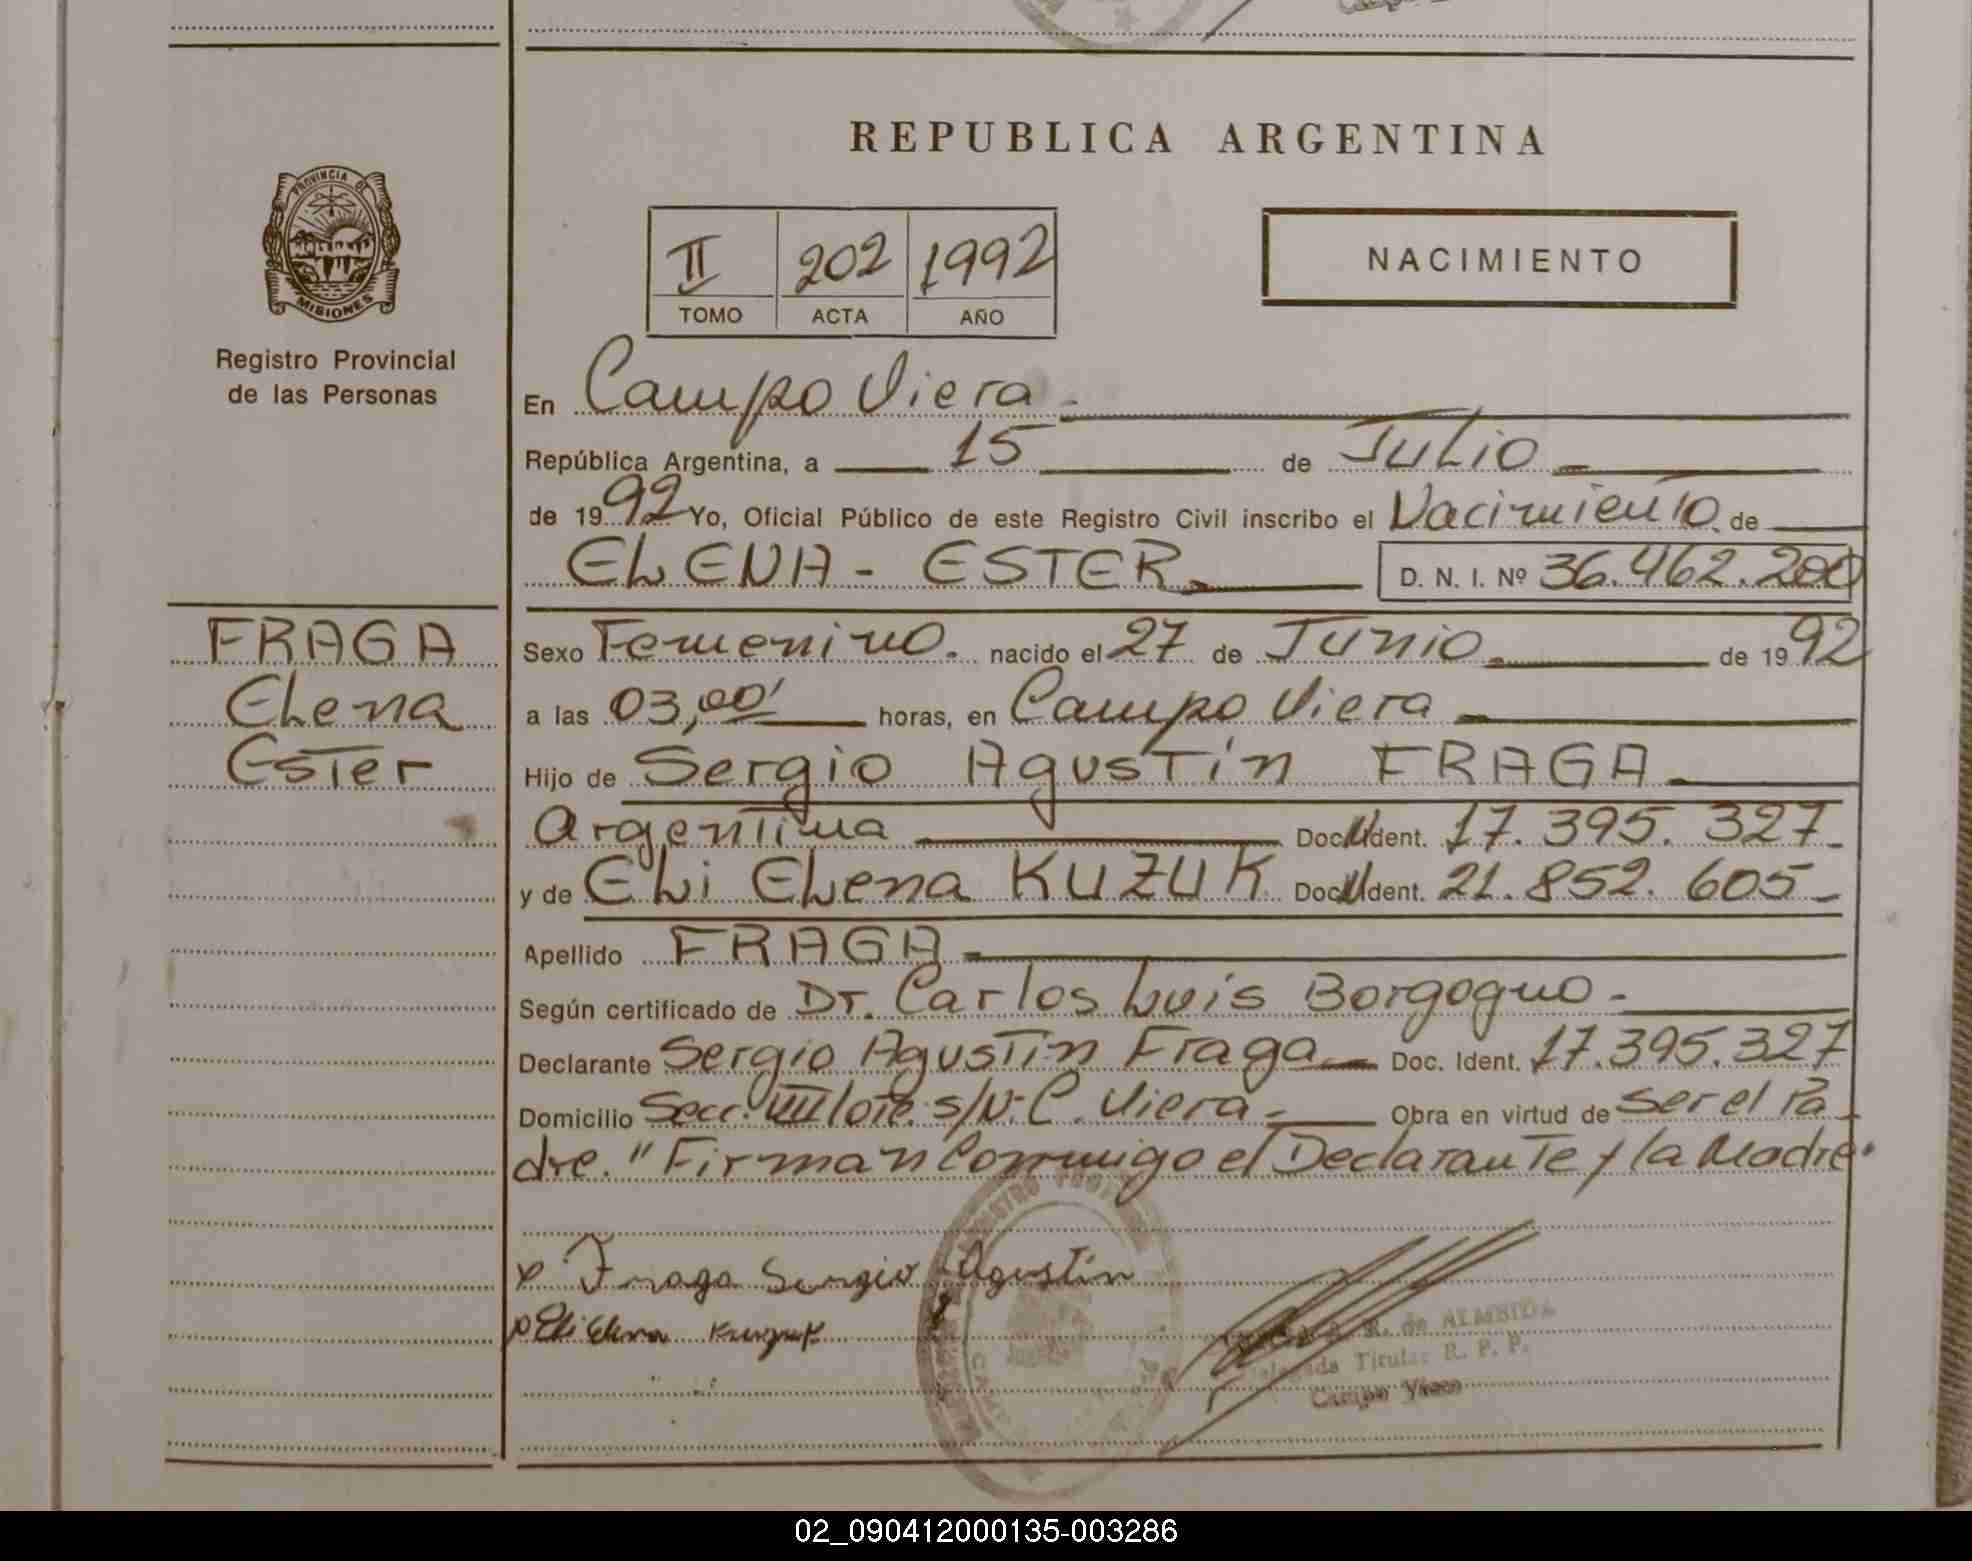 REPUBLICA ARGENTINA
PROVINCIA DE
MISIONES
Registro Provincial
de las Personas
II 202 1992
TOMO ACTA AÑO
NACIMIENTO
En Campo Viera.
República Argentina, a 15 de Julio
de 1992 Yo, Oficial Público de este Registro Civil inscribo el Nacimiento de
ELENA - ESTER. D. N. I. Nº 36.462.200
FRAGA
Elena
Ester
Sexo Femenino. nacido el 27 de Junio. de 1992
a las 03,00' horas, en Campo Viera
Hijo de Sergio Agustín FRAGA.
Argentina Doc. Ident. 17.395.327-
y de Eli Elena KUZUK Doc. Ident. 21.852.605-
Apellido FRAGA-
Según certificado de Dr. Carlos Luis Borgogno-
Declarante Sergio Agustín Fraga Doc. Ident. 17.395.327
Domicilio Secc. VIII lote. s/N: C. Viera- Obra en virtud de Ser el Pa-
dre. "Firman Conmigo el Declarante y la Madre.
x Fraga Sergio Agustín
Eli Elena Kuzuk
R. de ALMEIDA
Titular R. P. P.
Campo Viera
02_090412000135-003286